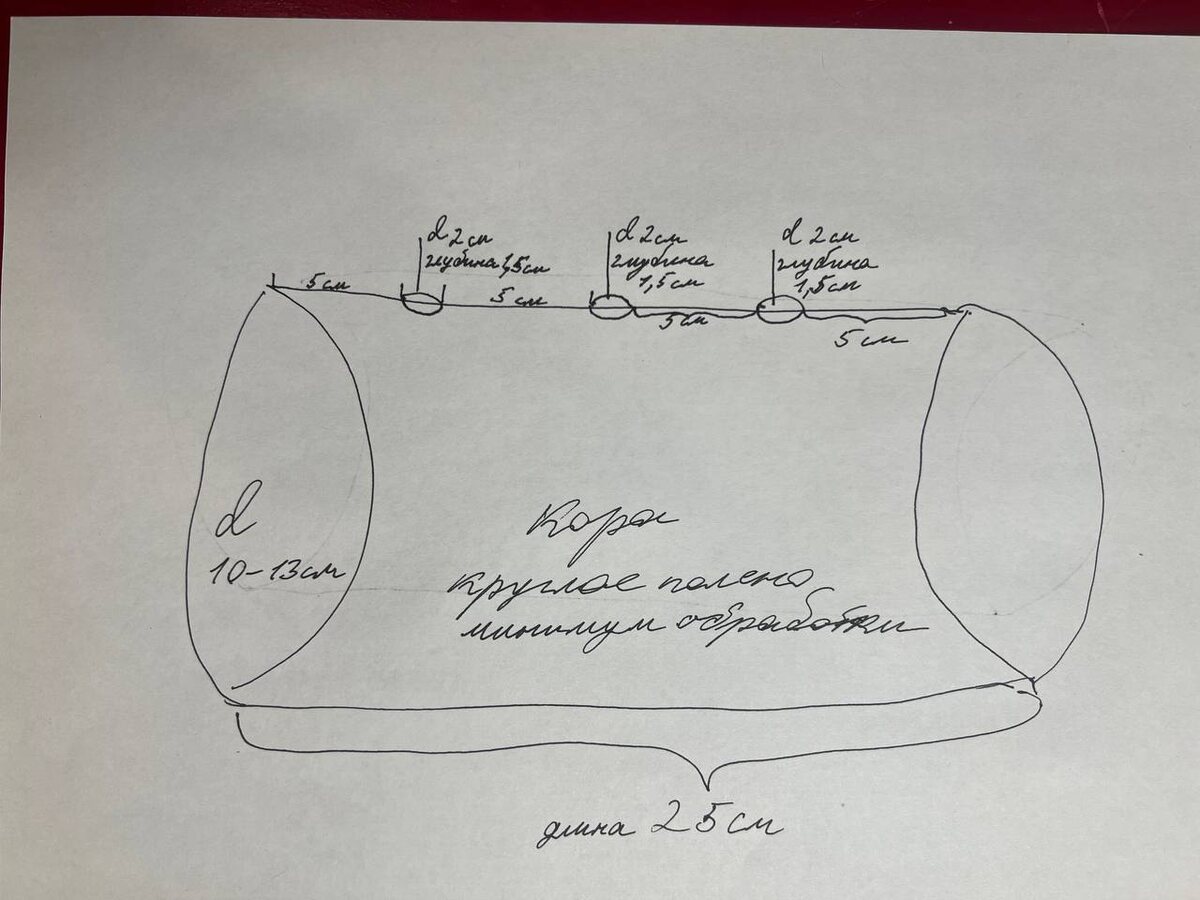 d 2 см
глубина 1,5 см
d 2 см
глубина
1,5 см
d 2 см
глубина
1,5 см
5 см
5 см
5 см
5 см
d
10-13 см
Кора
круглое полено
минимум обработки
длина 25 см